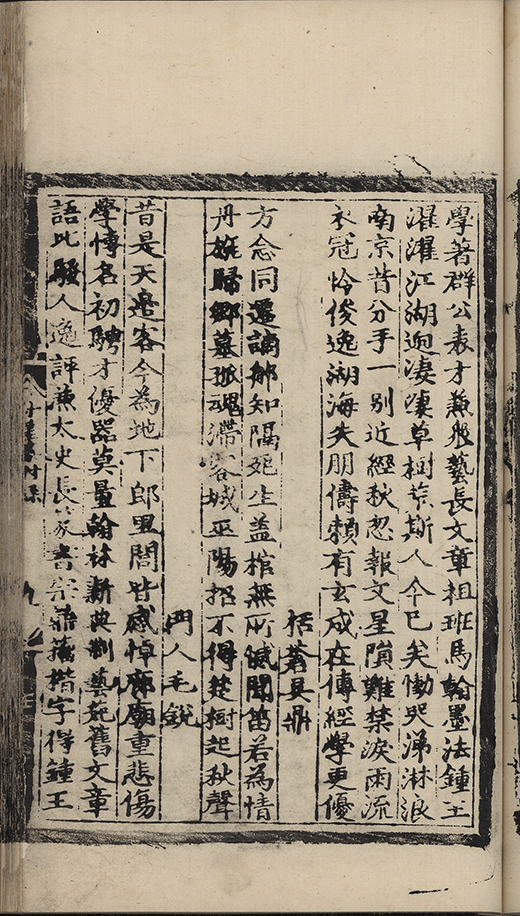 學著群公表才兼衆藝長文章祖班馬翰墨法鍾王
濯濯江湖迥淒淒草樹荒斯人今已矣慟哭涕淋浪
南京昔分手一別近經秋忽報文星隕難禁淚雨流
衣冠怜俊逸湖海失朋儔頼有玄成在傳經學更優
括蒼吴鼎
方念同還詎郍知隔死生盖棺無所憾聞笛若為情
丹旐歸鄉墓孤魂滯客城巫陽招不得楚樹起秋聲
門人毛銳
昔是天邉客今為地下郎里閭皆感悼廊廟重悲傷
學博名初騁才優器莫量翰林新典制藝苑舊文章
語比騷人逸評兼太史長篆書宗鼎籀楷字得鍾王